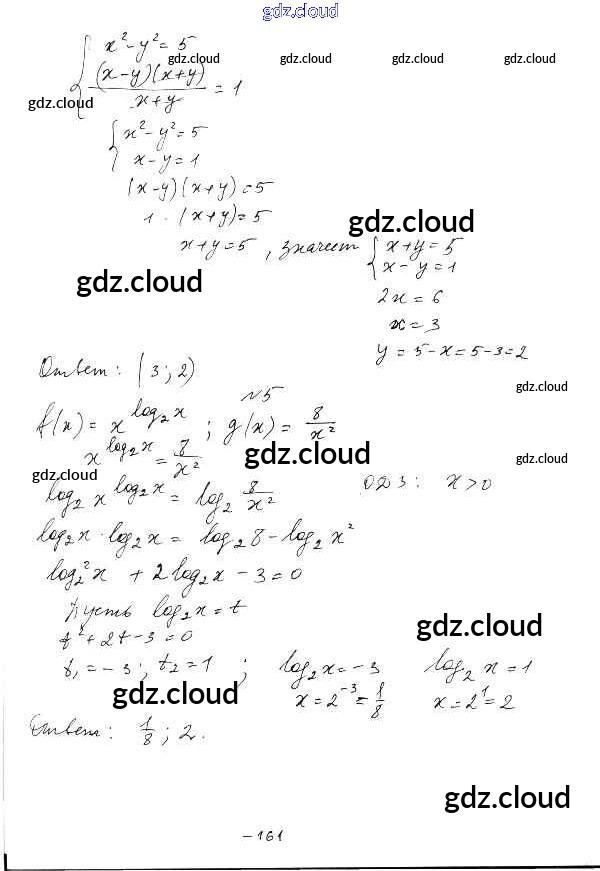 gdz.cloud
x² - y² = 5
gdz.cloud gdz.cloud gdz.cloud gdz.cloud
(x-y)(x+y)/x+y = 1
gdz.cloud
x² - y² = 5
x - y = 1
(x-y)(x+y) = 5
1 · (x+y) = 5
gdz.cloud
x+y = 5, значит { x+y = 5
x - y = 1
gdz.cloud
2x = 6
x = 3
y = 5 - x = 5 - 3 = 2
Ответ: (3; 2)
gdz.cloud
№5
f(x) = x^log₂x ; g(x) = 8/x²
gdz.cloud
x^log₂x = 8/x²
gdz.cloud
gdz.cloud
log₂ x^log₂x = log₂ 8/x² ОДЗ: x > 0
log₂x · log₂x = log₂8 - log₂x²
log₂²x + 2log₂x - 3 = 0
Пусть log₂x = t
gdz.cloud
t² + 2t - 3 = 0
t₁ = -3; t₂ = 1 ; log₂x = -3 log₂x = 1
gdz.cloud
x = 2⁻³ = 1/8 x = 2¹ = 2
Ответ: 1/8; 2.
gdz.cloud
- 161